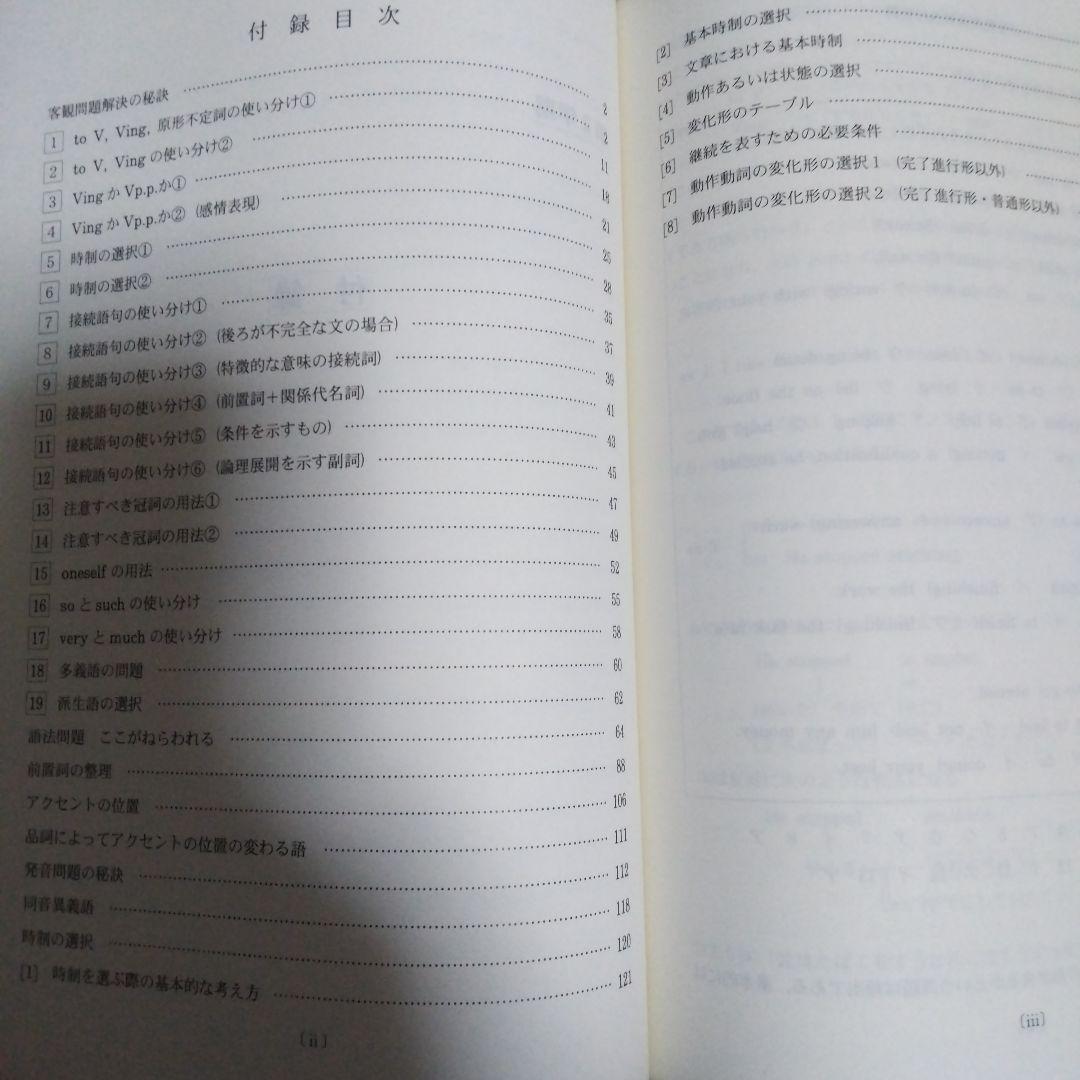 付録目次
客観問題解決の秘訣 2
1 to V, Ving, 原形不定詞の使い分け① 2
2 to V, Ving の使い分け② 11
3 Ving か Vp.p.か① 18
4 Ving か Vp.p.か②(感情表現) 21
5 時制の選択① 25
6 時制の選択② 28
7 接続語句の使い分け① 35
8 接続語句の使い分け②(後ろが不完全な文の場合) 37
9 接続語句の使い分け③(特徴的な意味の接続詞) 39
10 接続語句の使い分け④(前置詞+関係代名詞) 41
11 接続語句の使い分け⑤(条件を示すもの) 43
12 接続語句の使い分け⑥(論理展開を示す副詞) 45
13 注意すべき冠詞の用法① 47
14 注意すべき冠詞の用法② 49
15 oneself の用法 52
16 so と such の使い分け 55
17 very と much の使い分け 58
18 多義語の問題 60
19 派生語の選択 62
語法問題 ここがねらわれる 64
前置詞の整理 88
アクセントの位置 106
品詞によってアクセントの位置の変わる語 111
発音問題の秘訣 112
同音異義語 118
時制の選択 120
[1] 時制を選ぶ際の基本的な考え方 121
〔ii〕
[2] 基本時制の選択
[3] 文章における基本時制
[4] 動作あるいは状態の選択
[5] 変化形のテーブル
[6] 継続を表すための必要条件
[7] 動作動詞の変化形の選択1(完了進行形以外)
[8] 動作動詞の変化形の選択2(完了進行形・普通形以外)
〔iii〕